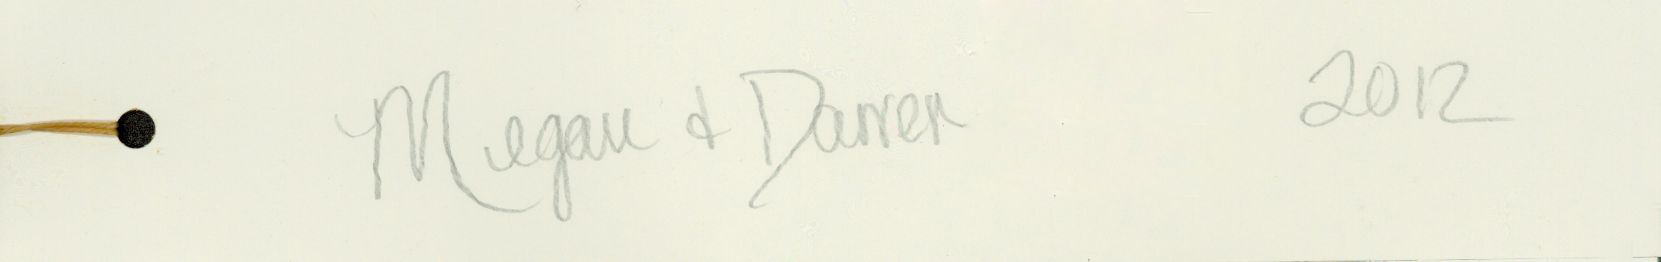 Megan & Darren 2012